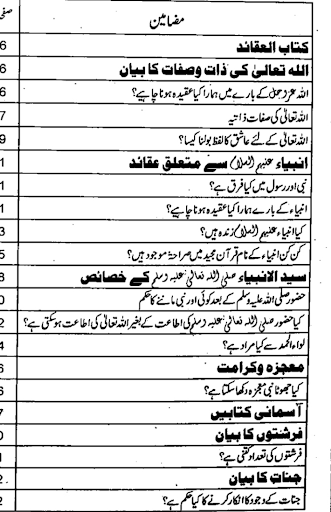 مضامین صفحہ
کتاب العقائد 6
اللہ تعالیٰ کی ذات وصفات کا بیان 6
اللہ عزوجل کے بارے میں ہمارا کیا عقیدہ ہونا چاہیے؟ 6
اللہ تعالیٰ کی صفات ذاتیہ 7
اللہ تعالیٰ کے لئے عاشق کا لفظ بولنا کیسا؟ 9
انبیاء علیہم السلام سے متعلق عقائد 1
نبی اور رسول میں کیا فرق ہے؟ 1
انبیاء کے بارے ہمارا کیا عقیدہ ہونا چاہیے؟ 1
کیا انبیاء علیہم السلام زندہ ہیں؟ 3
کن کن انبیاء کے نام قرآن مجید میں صراحۃً موجود ہیں؟ 5
سید الانبیاء صلی اللہ تعالیٰ علیہ وسلم کے خصائص 8
حضور صلی اللہ علیہ وسلم کے بعد کوئی اور نبی ماننے کا حکم 0
کیا حضور صلی اللہ تعالیٰ علیہ وسلم کی اطاعت کے بغیر اللہ تعالیٰ کی اطاعت ہوسکتی ہے؟ 2
لواء الحمد سے کیا مراد ہے؟ 4
معجزہ وکرامت 6
کیا جھوٹا نبی معجزہ دکھا سکتا ہے؟ 6
آسمانی کتابیں 7
فرشتوں کا بیان 0
فرشتوں کی تعداد کتنی ہے؟ 1
جنات کا بیان 2
جنات کے وجود کا انکار کرنے کا کیا حکم ہے؟ 2